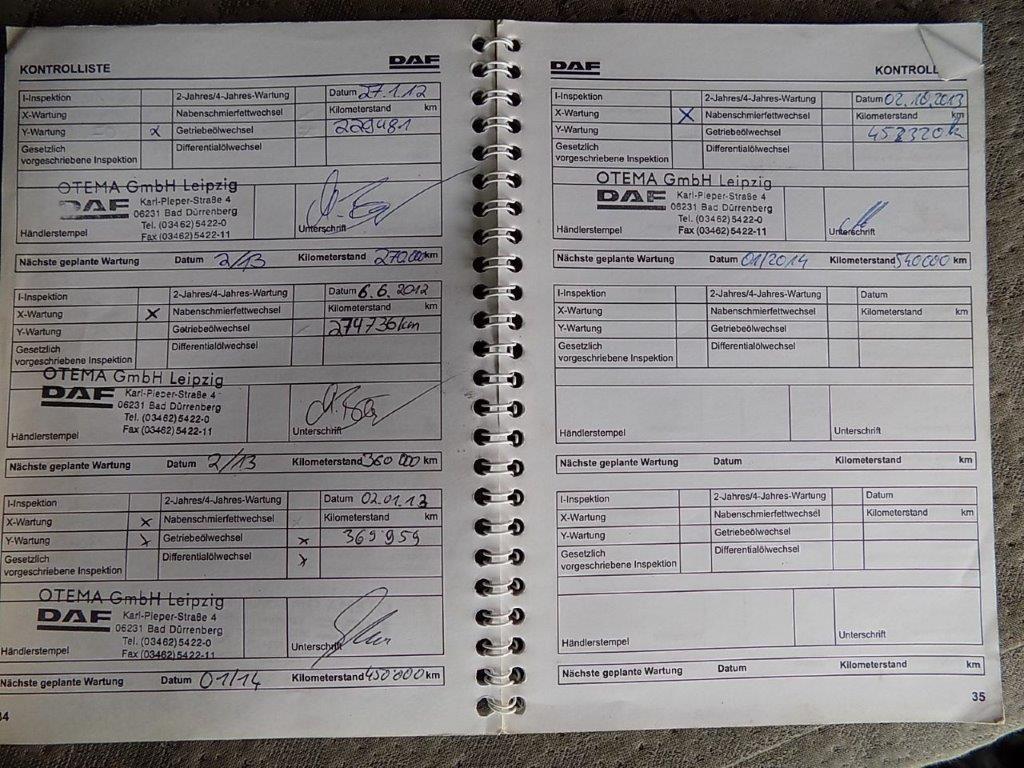 DAF
KONTROLLISTE
I-Inspektion 2-Jahres/4-Jahres-Wartung Datum 27.1.12
X-Wartung Nabenschmierfettwechsel Kilometerstand km
Y-Wartung x Getriebeölwechsel 229481
Gesetzlich vorgeschriebene Inspektion Differentialölwechsel
OTEMA GmbH Leipzig
DAF Karl-Pieper-Straße 4
06231 Bad Dürrenberg
Tel. (03462)5422-0
Fax (03462)5422-11
Händlerstempel Unterschrift
Nächste geplante Wartung Datum 2/13 Kilometerstand 270000 km
I-Inspektion 2-Jahres/4-Jahres-Wartung Datum 6.6.2012
X-Wartung x Nabenschmierfettwechsel Kilometerstand km
Y-Wartung Getriebeölwechsel 274736km
Gesetzlich vorgeschriebene Inspektion Differentialölwechsel
OTEMA GmbH Leipzig
DAF Karl-Pieper-Straße 4
06231 Bad Dürrenberg
Tel. (03462)5422-0
Fax (03462)5422-11
Händlerstempel Unterschrift
Nächste geplante Wartung Datum 2/13 Kilometerstand 360 000 km
I-Inspektion 2-Jahres/4-Jahres-Wartung Datum 02.01.13
X-Wartung x Nabenschmierfettwechsel Kilometerstand km
Y-Wartung x Getriebeölwechsel x 369'959
Gesetzlich vorgeschriebene Inspektion Differentialölwechsel x
OTEMA GmbH Leipzig
DAF Karl-Pieper-Straße 4
06231 Bad Dürrenberg
Tel. (03462)5422-0
Fax (03462)5422-11
Händlerstempel Unterschrift
Nächste geplante Wartung Datum 01/14 Kilometerstand 450'000 km
34
DAF
KONTROLL
I-Inspektion 2-Jahres/4-Jahres-Wartung Datum 02.10.2013
X-Wartung X Nabenschmierfettwechsel Kilometerstand km
Y-Wartung Getriebeölwechsel
Gesetzlich vorgeschriebene Inspektion Differentialölwechsel
OTEMA GmbH Leipzig
DAF Karl-Pieper-Straße 4
06231 Bad Dürrenberg
Tel. (03462)5422-0
Fax (03462)5422-11
Händlerstempel Unterschrift
Nächste geplante Wartung Datum 01/2014 Kilometerstand 540000 km
I-Inspektion 2-Jahres/4-Jahres-Wartung Datum
X-Wartung Nabenschmierfettwechsel Kilometerstand km
Y-Wartung Getriebeölwechsel
Gesetzlich vorgeschriebene Inspektion Differentialölwechsel
Händlerstempel Unterschrift
Nächste geplante Wartung Datum Kilometerstand km
I-Inspektion 2-Jahres/4-Jahres-Wartung Datum
X-Wartung Nabenschmierfettwechsel Kilometerstand km
Y-Wartung Getriebeölwechsel
Gesetzlich vorgeschriebene Inspektion Differentialölwechsel
Händlerstempel Unterschrift
Nächste geplante Wartung Datum Kilometerstand km
35